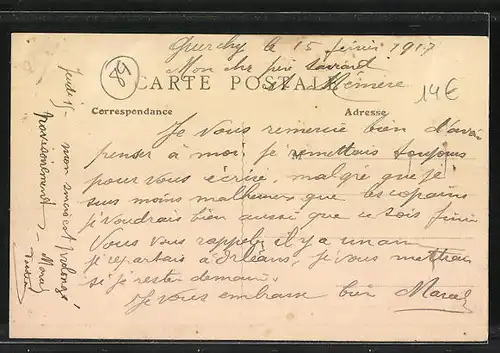 Guerchy le 15 février 1917
Mon cher père
58
CARTE POSTALE
14€
Correspondance
Adresse
Je vous remercie bien d'avoir
penser à moi, je remettais toujours
pour vous écrire, malgré que je
suis moins malheureux que les copains
je voudrais bien aussi que ce sois fini
Vous vous rappelez il y a un an
je repartais à Orléans, je vous mettrai
si je reste demain.
Je vous embrasse bien Marcel
Jeudi 15 - mon sursis est prolongé,
provisoirement - Marcel